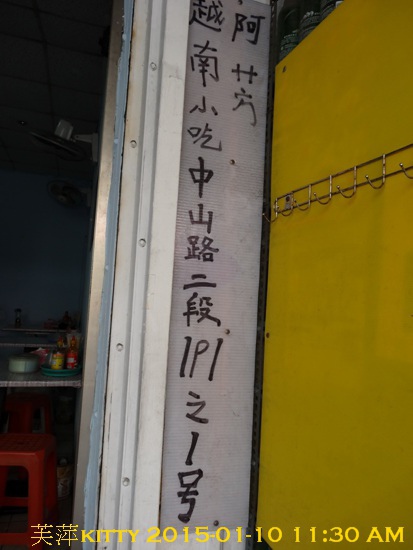 阿芳
越南小吃中山路二段191之1号
芙萍KITTY 2015-01-10 11:30 AM